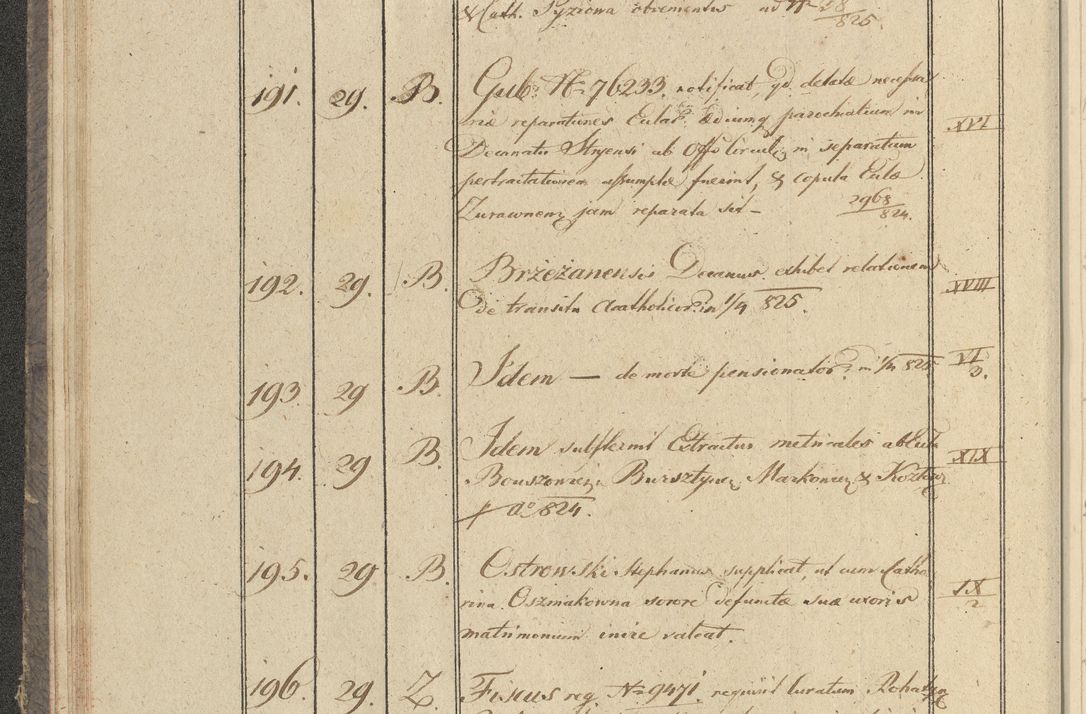 & Cath. Syziowa obrementus ad N 28/825.
191. 29. B. Gub. N. 76233. notificat, qd. detatæ necessa
riæ reparationes Eclar. ædiumq parochialium in
Decanatu Stryensi ab Offo Circuli in separatam XVI
pertractationem assumptæ fuerint, & copula Eclæ
Zurawnen. jam reparata sit – 2968/824.
192. 29. B. Brzeżanensis Decanus exhibet relationem XVIII
de transitu Acatholicor. in 1/4 825.
193. 29 B. Idem — de morte pensionator. in 1/4 825 VI/3.
194. 29 B. Idem substernit Extractus metricales ab Eccl.
Bouszowien. Bursztyn. Markowien & Kozlow XIX
p Aº 824.
195. 29 B. Ostrowski Stephanus supplicat, ut cum Catha
rina Oszmakowna sorore defunctæ suæ uxoris IX/2
matrimonium inire valeat.
196. 29. Z. Fiscus reg. N. 9471. requirit Curatum Rohatyn